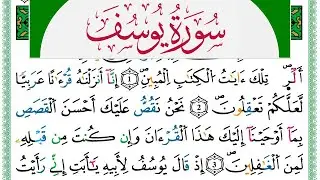 سُورَةُ يُوسُفَ
الٓرۚ تِلۡكَ ءَايَٰتُ ٱلۡكِتَٰبِ ٱلۡمُبِينِ ۝١ إِنَّآ أَنزَلۡنَٰهُ قُرۡءَٰنًا عَرَبِيّٗا
لَّعَلَّكُمۡ تَعۡقِلُونَ ۝٢ نَحۡنُ نَقُصُّ عَلَيۡكَ أَحۡسَنَ ٱلۡقَصَصِ
بِمَآ أَوۡحَيۡنَآ إِلَيۡكَ هَٰذَا ٱلۡقُرۡءَانَ وَإِن كُنتَ مِن قَبۡلِهِۦ
لَمِنَ ٱلۡغَٰفِلِينَ ۝٣ إِذۡ قَالَ يُوسُفُ لِأَبِيهِ يَٰٓأَبَتِ إِنِّي رَأَيۡتُ